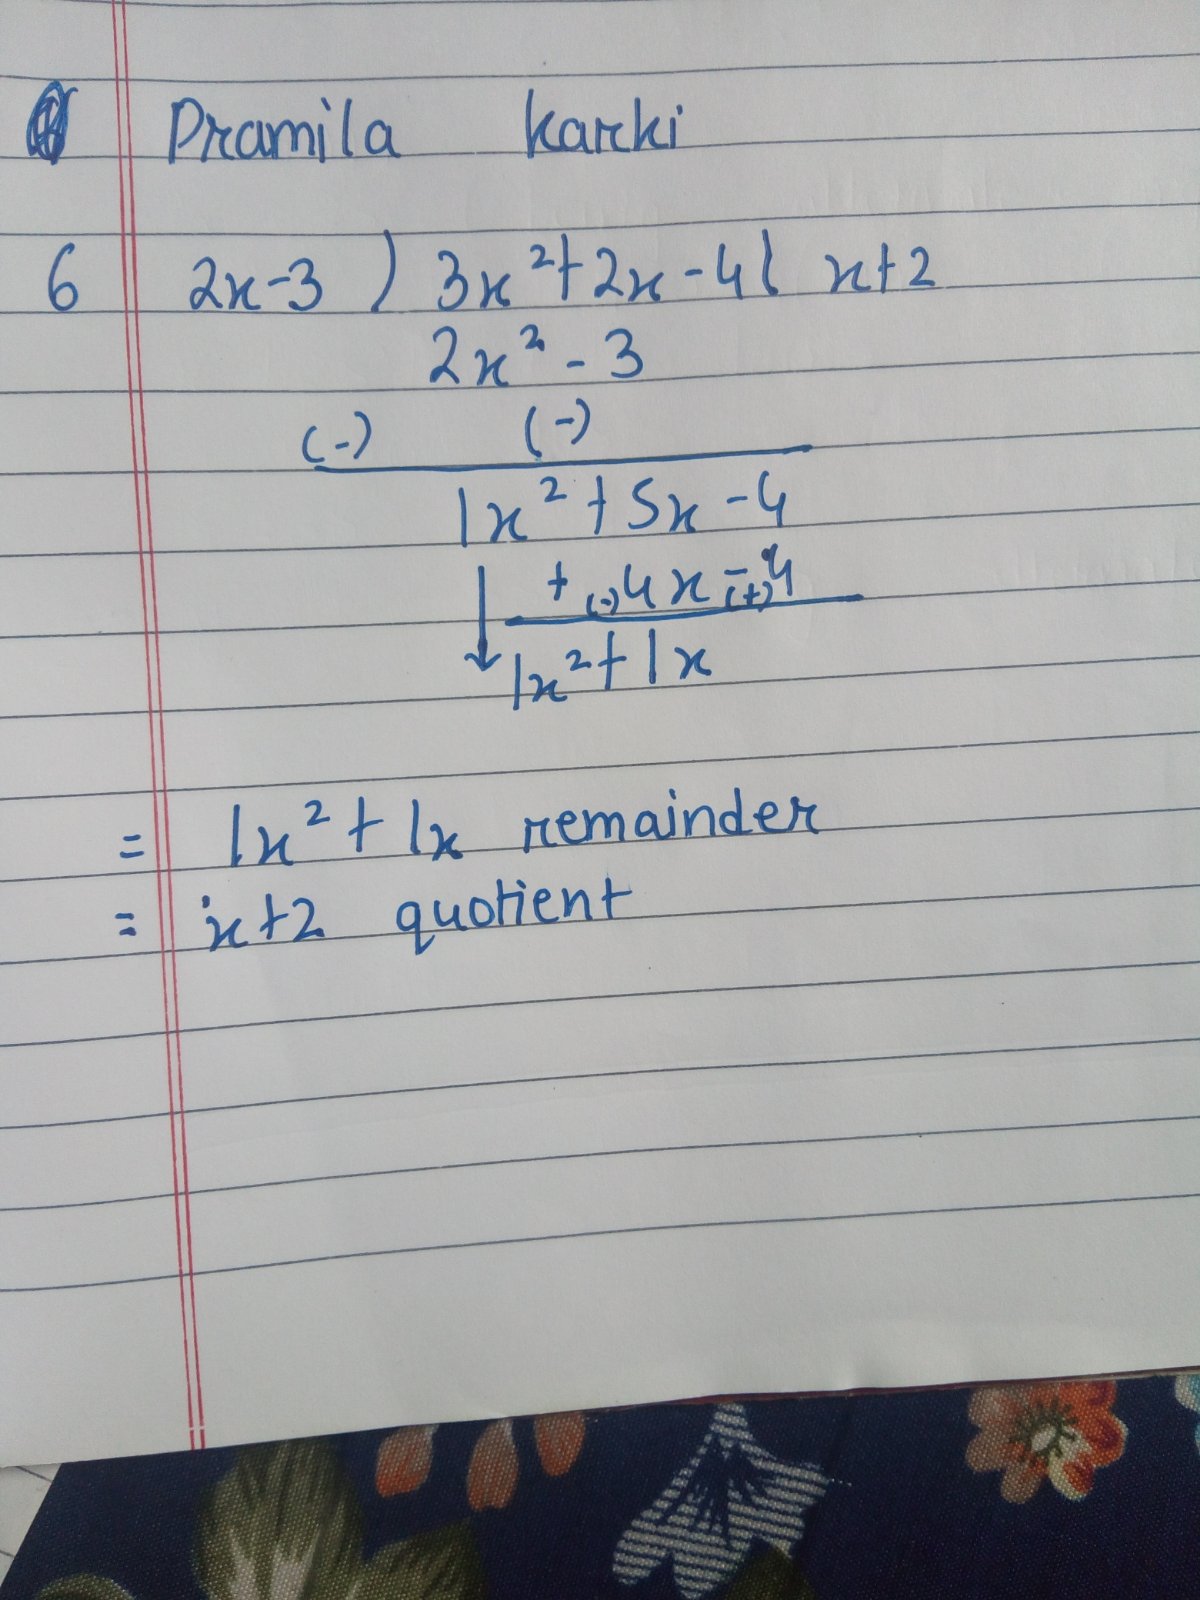 Pramila Karki
6 2x-3 ) 3x²+2x-4 ( x+2
2x²-3
(-) (-)
1x²+5x-4
+ 4x-4
(-) (+)
1x²+1x
= 1x²+1x remainder
= x+2 quotient